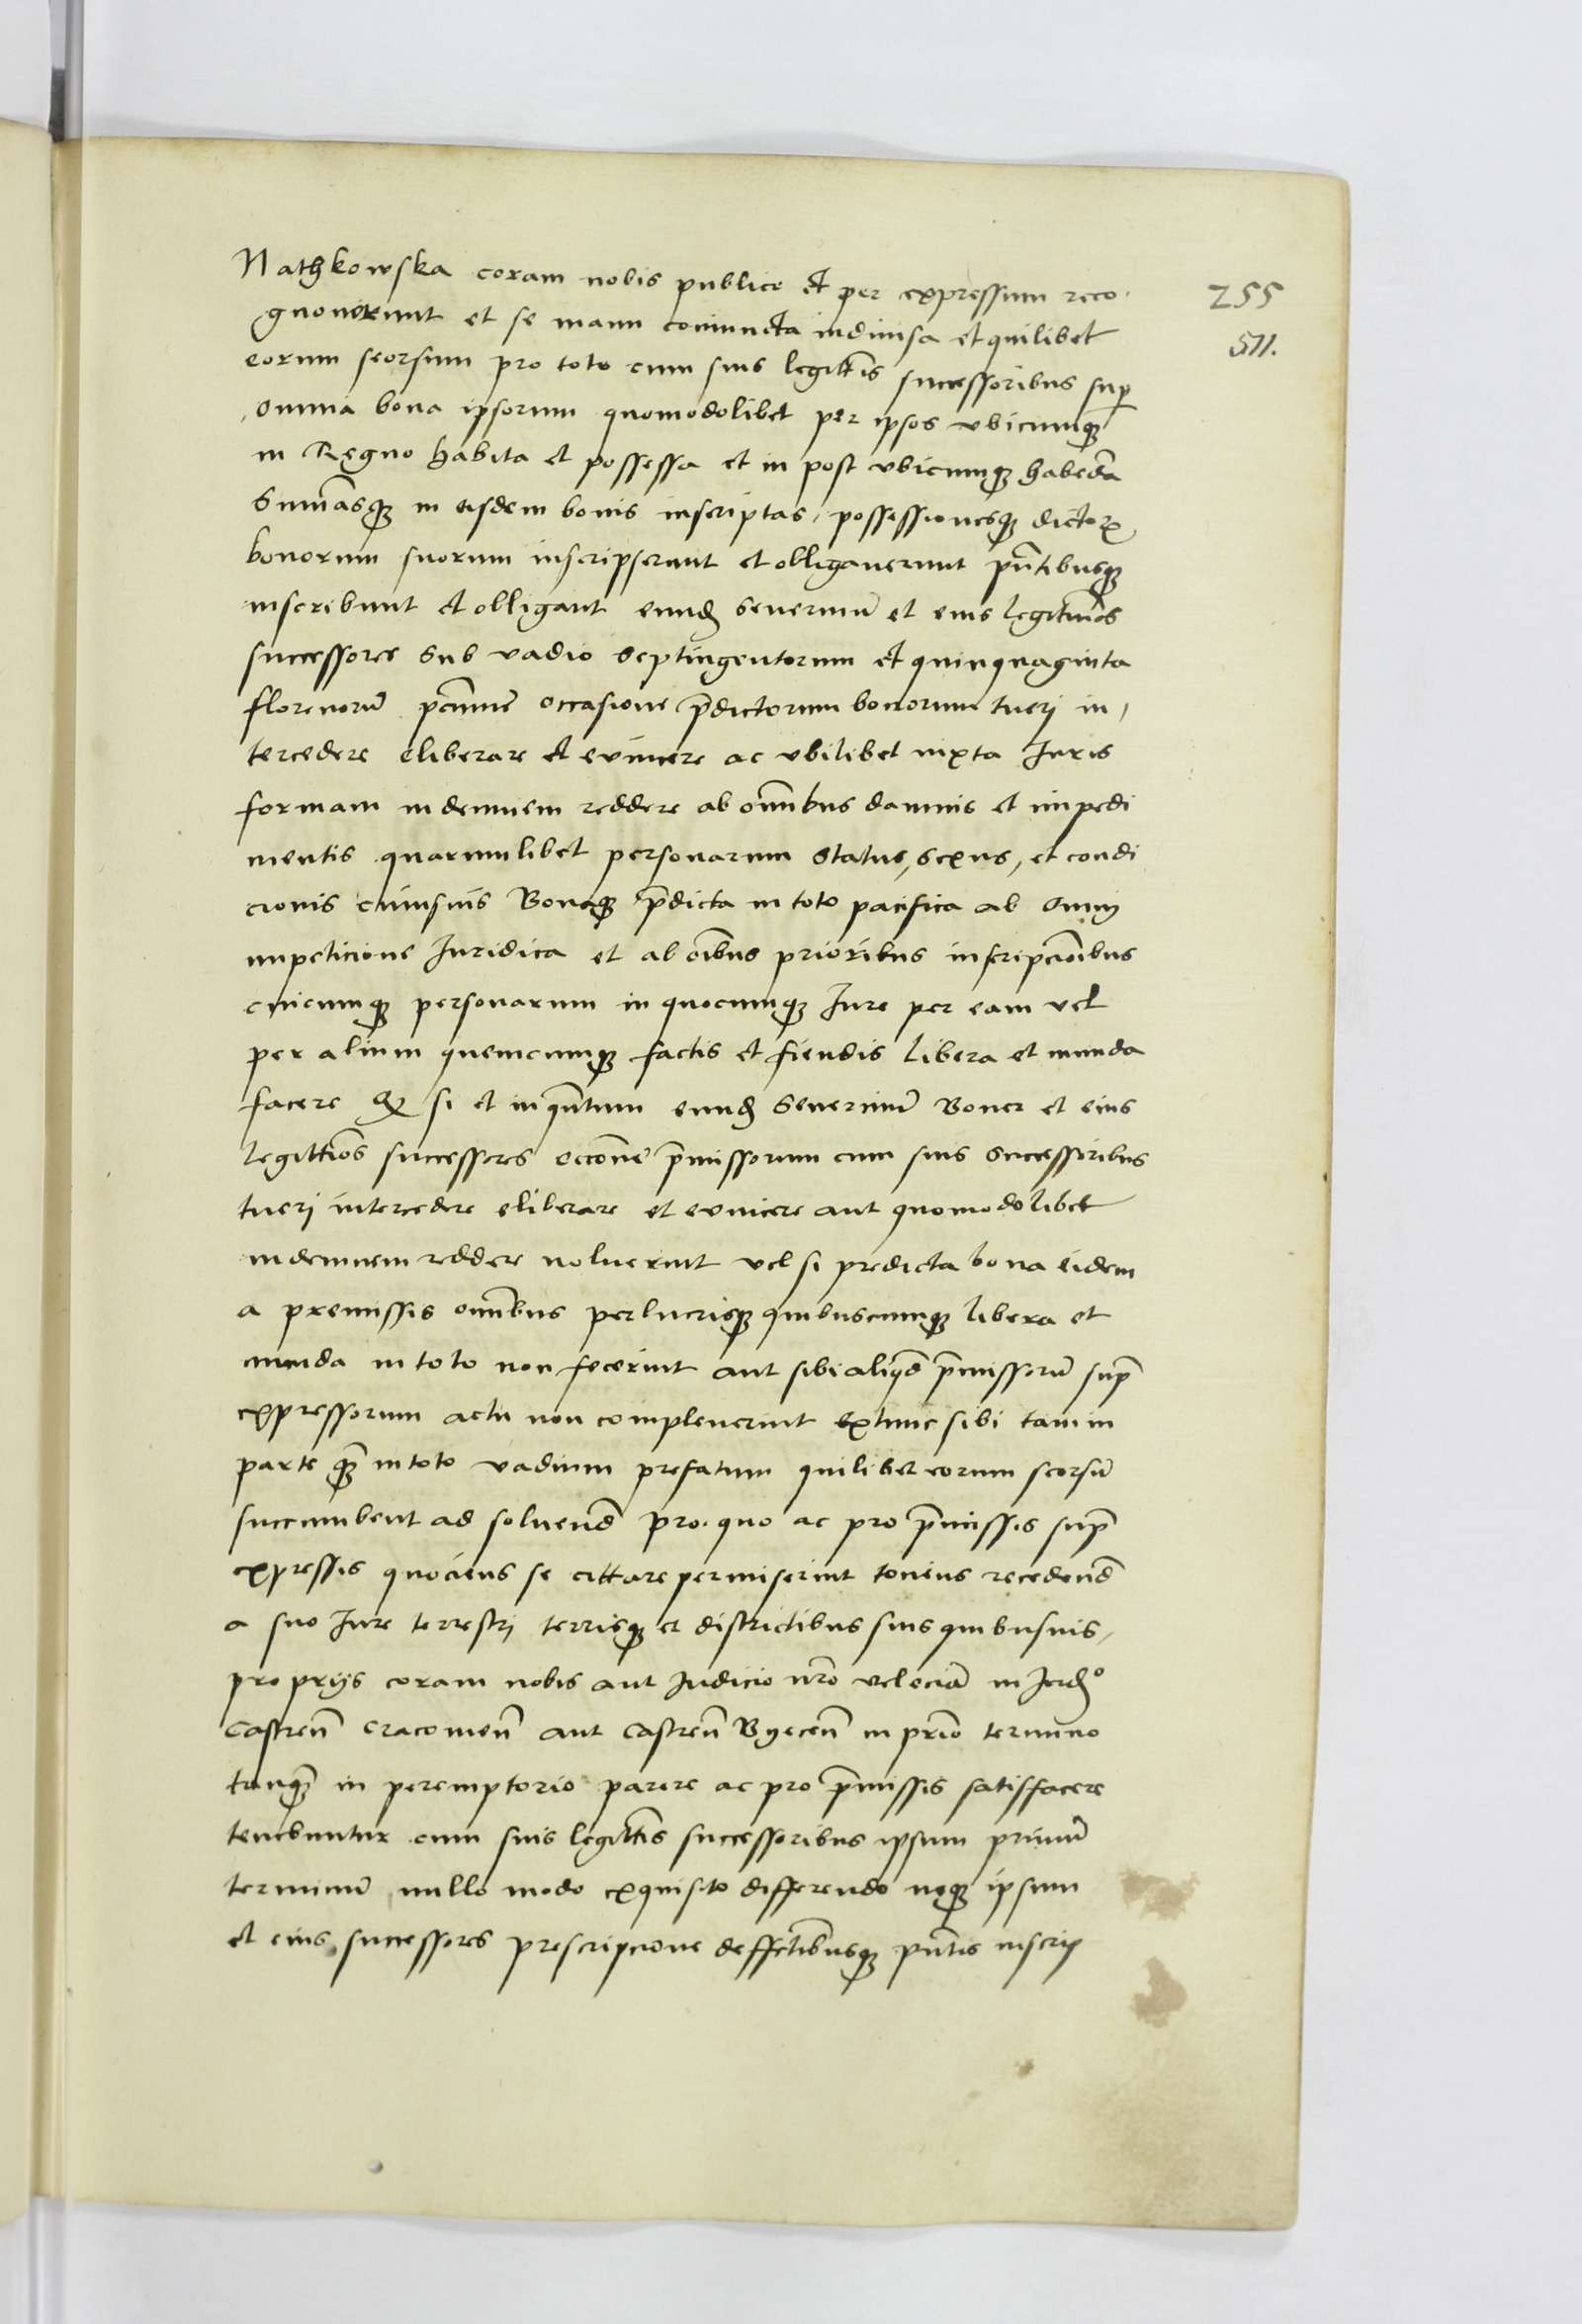 Nathkowska coram nobis publice et per expressum reco-
gnoverunt et se manu coniuncta indivisa et quilibet
eorum seorsum pro toto cum suis legittīs successoribus sup
omnia bona ipsorum quomodolibet per ipsos vbicumqȝ
in Regno habita et possessa et in post vbicumqȝ habēda
Sum̄asqȝ in eisdem bonis inscriptas, possessionesqȝ dictoꝝ
bonorum suorum inscripserunt et obligaverunt pn̄tibusqȝ
inscribunt et obligant eund̄ Severinū et eius legittīos
successores sub vadio septingentorum et quinquaginta
florenorū pecunie occasione p̄dictorum bonorum tuerj in,
tercedere eliberare et evincere ac vbilibet iuxta Iuris
formam indemnem reddere ab om̄ibus damnis et impedi
mentis quarumlibet personarum status, sexus, et condi
cionis cuiusvis Bonaqȝ p̄dicta in toto pacifica ab omnj
impeticione Iuridica et ab oībus prioribus inscripcōnibus
cuicumqȝ personarum in quocumqȝ Iure per eam vel
per alium quemcumqȝ factis et fiendis libera et munda
facere Qȝ si et inqn̄tum eund̄ Severinū Boner et eius
legittīos successores occōne p̄missorum cum suis successoribus
tuerj intercedere eliberare et evincere aut quomodolibet
indemnem reddere noluerint vel si predicta bona eidem
a premissis om̄ibus perlucrisqȝ quibuscumqȝ libera et
munda in toto non fecerint aut sibi aliqd̄ p̄missorū sup̄
expressorum actu non compleverint extunc sibi tam in
parte qȝ̄ in toto vadium prefatum quilibet eorum seorsū
succumbent ad solvend̄ pro quo ac pro p̄missis sup̄
expressis quociens se cittare permiserint tociens recedend̄
a suo Iure terrestrj terrisqȝ et districtibus suis quibusvis,
proprijs coram nobis aut Iudicio nr̄o vel eciā in Iud̄º
Castren̄ Cracovien̄ aut Castren̄ Byecen̄ in prīo termino
tanqȝ̄ in peremptorio parere ac pro p̄missis satisfacere
tenebuntur cum suis legittīs successoribus ipsum primū
terminū nullo modo exquisito differendo neqȝ ipsum
et eius successores prescripcione deffectibusqȝ pn̄tis inscrip
255
511.